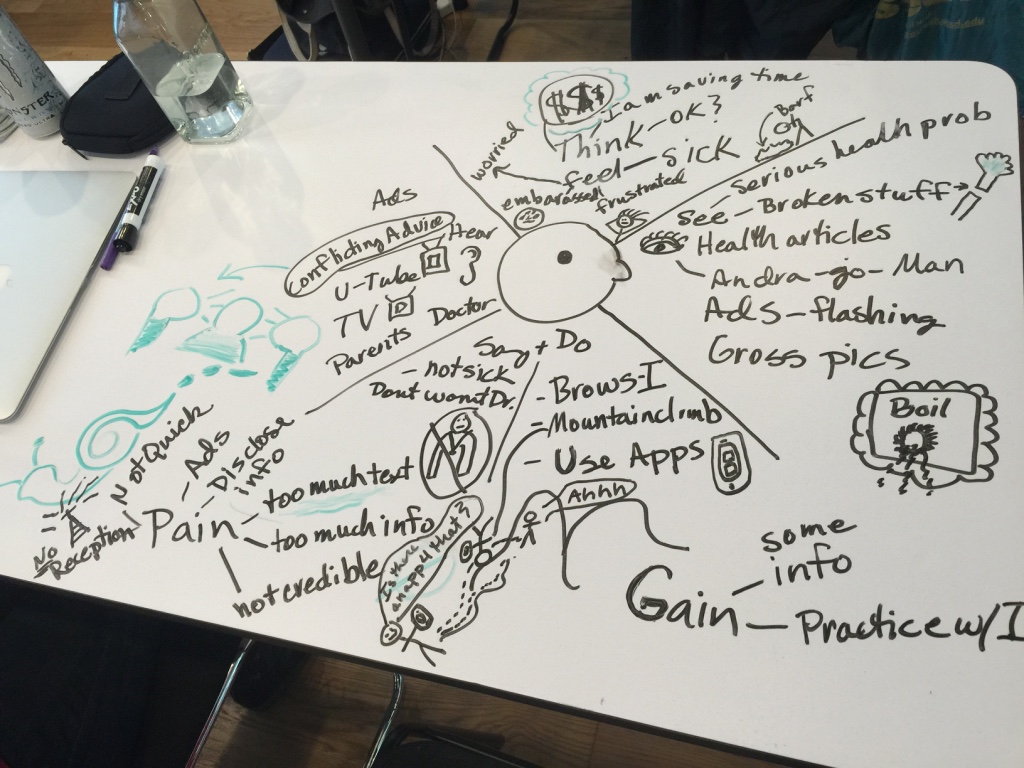 $$$
I am saving time
Think - ok?
feel - sick
worried
embarassed!
frustrated
Barf
Serious health prob
See - Broken stuff
Health articles
Andra-go-Man
Ads - flashing
Gross pics
Boil
Ads
Conflicting Advice
Hear
U-Tube
TV
Doctor
Parents
Say + Do
- not sick
Dont want Dr.
- Brows-I
- Mountain climb
- Use Apps
Ahhh
Is there
an app 4 that?
Pain
No
Reception
Not Quick
- Ads
- Disclose
info
too much text
too much info
not credible
Gain
some
info
Practice w/ I
STER